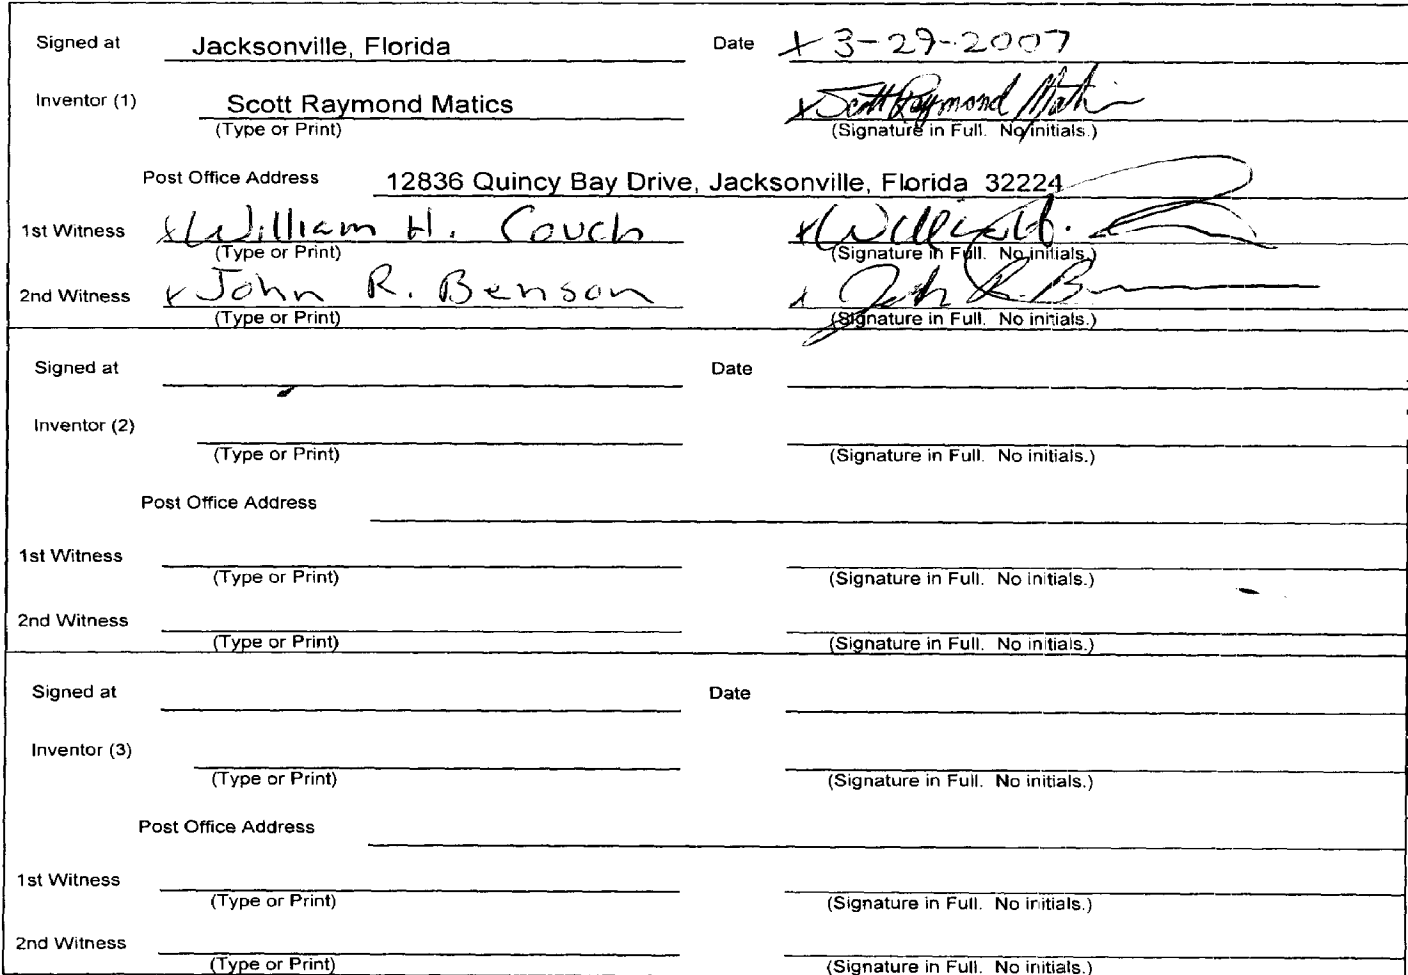 Signed at Jacksonville, Florida Date x 3-29-2007
Inventor (1) Scott Raymond Matics x Scott Raymond Matics
(Type or Print) (Signature in Full. No initials.)
Post Office Address 12836 Quincy Bay Drive, Jacksonville, Florida 32224
1st Witness x William H. Couch x William H.
(Type or Print) (Signature in Full. No initials.)
2nd Witness x John R. Benson x John R B
(Type or Print) (Signature in Full. No initials.)
Signed at Date
Inventor (2)
(Type or Print) (Signature in Full. No initials.)
Post Office Address
1st Witness
(Type or Print) (Signature in Full. No initials.)
2nd Witness
(Type or Print) (Signature in Full. No initials.)
Signed at Date
Inventor (3)
(Type or Print) (Signature in Full. No initials.)
Post Office Address
1st Witness
(Type or Print) (Signature in Full. No initials.)
2nd Witness
(Type or Print) (Signature in Full. No initials.)